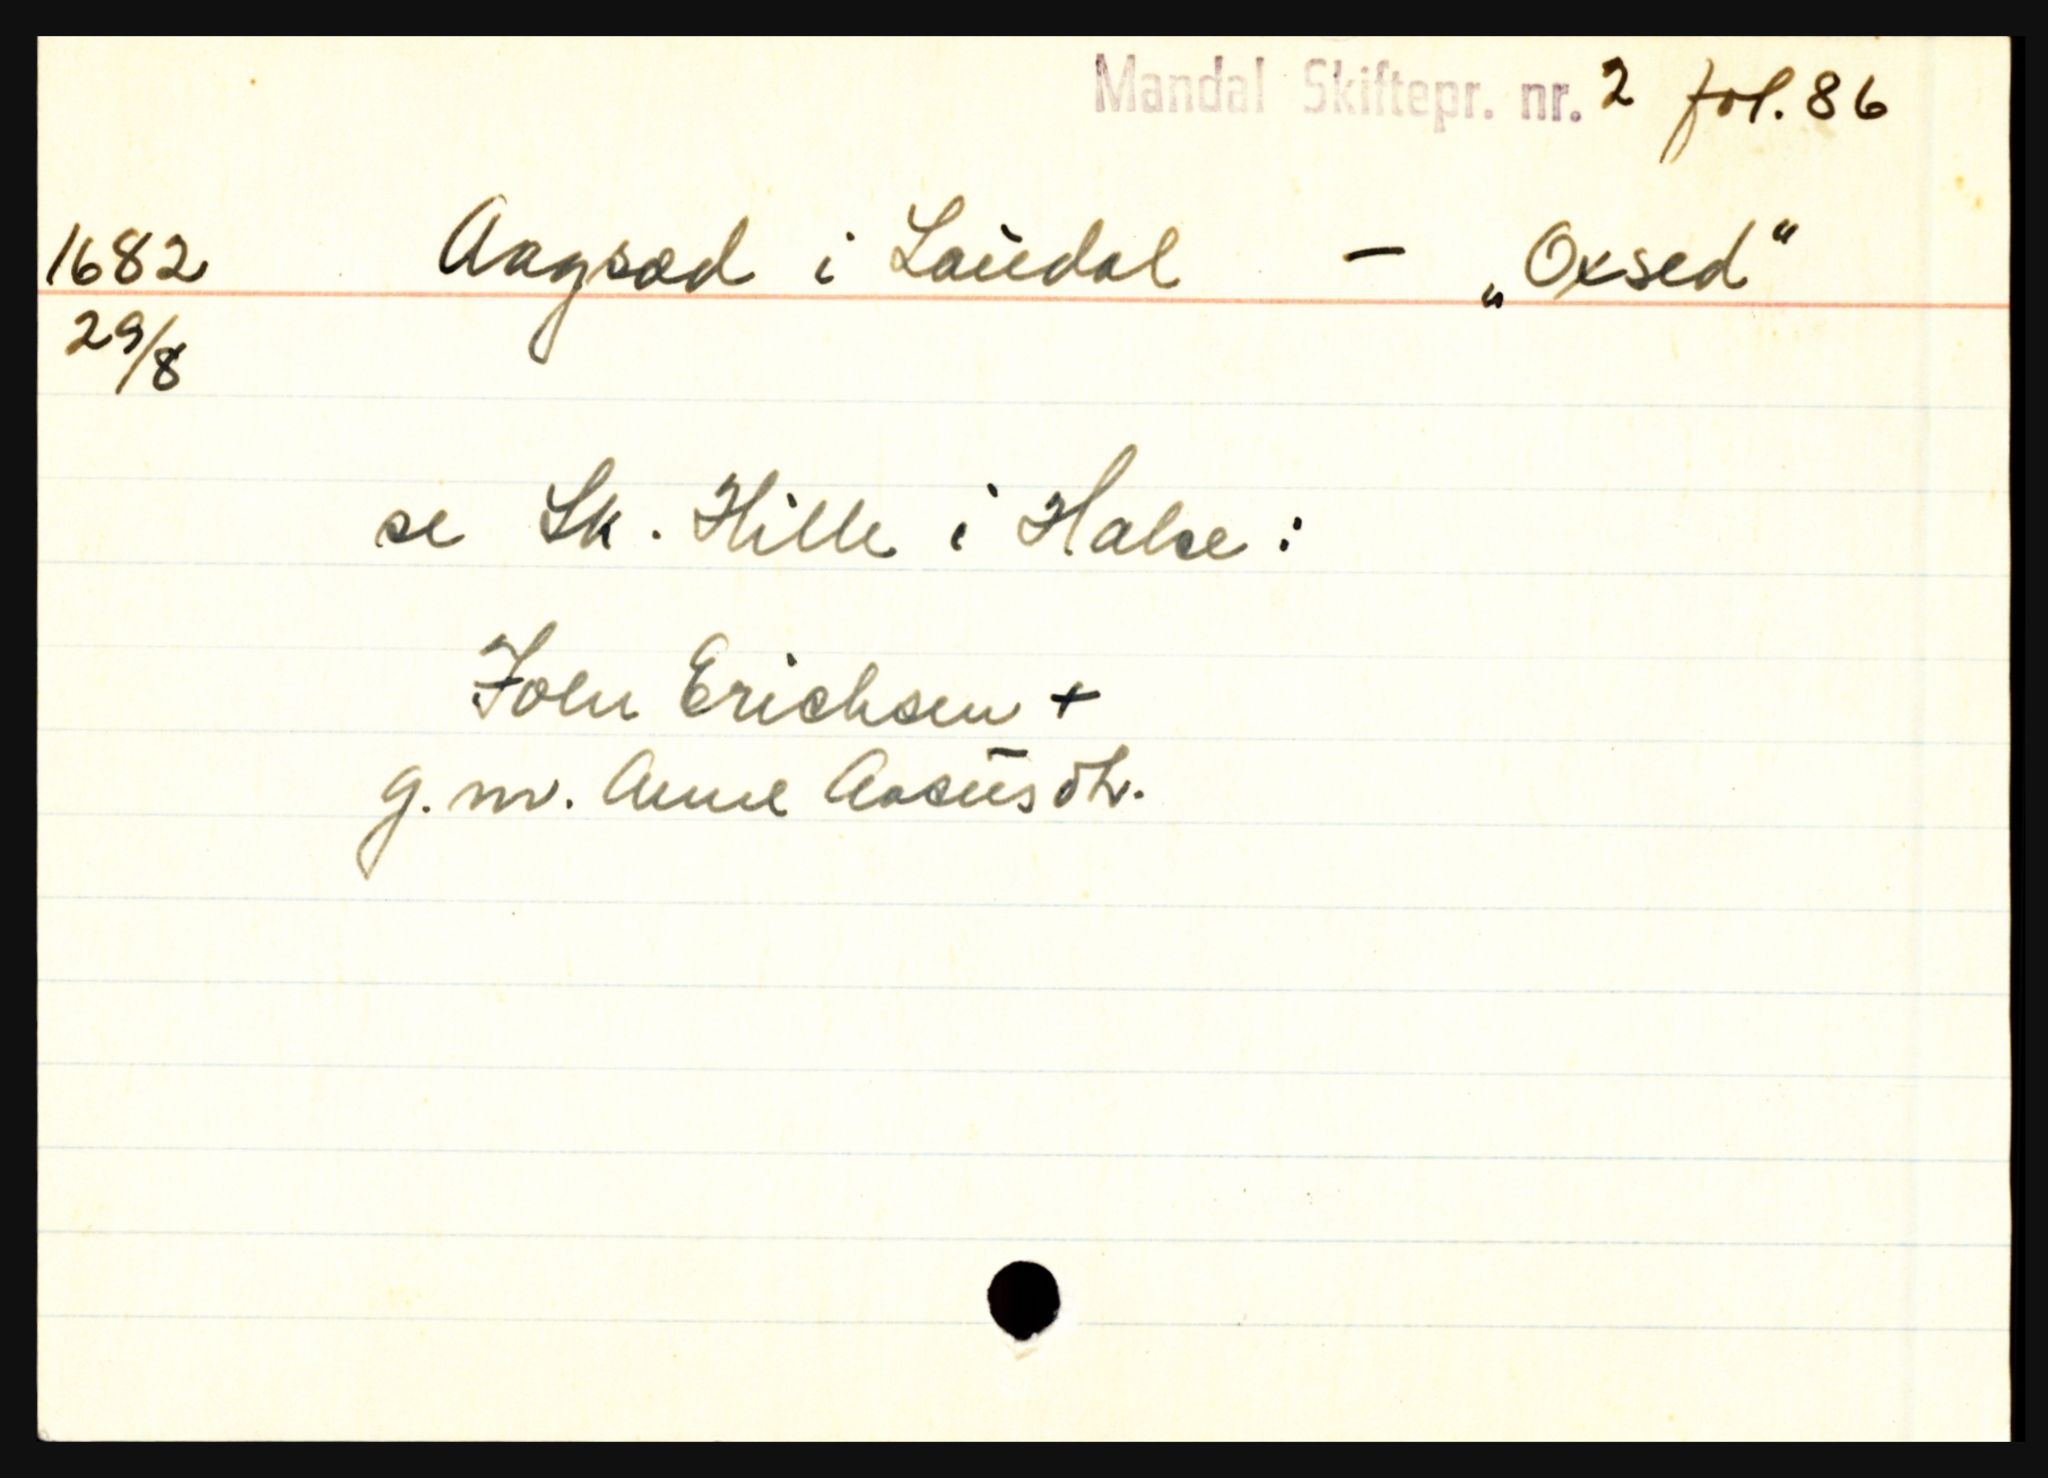 Mandal Skiftepr. nr. 2 fol. 86
1682 Aagsæd i Laudal — „Oxsed“
29/8
se Sk. Hille i Halse :
John Erichsen +
g. m. Anne Aasusdtr.